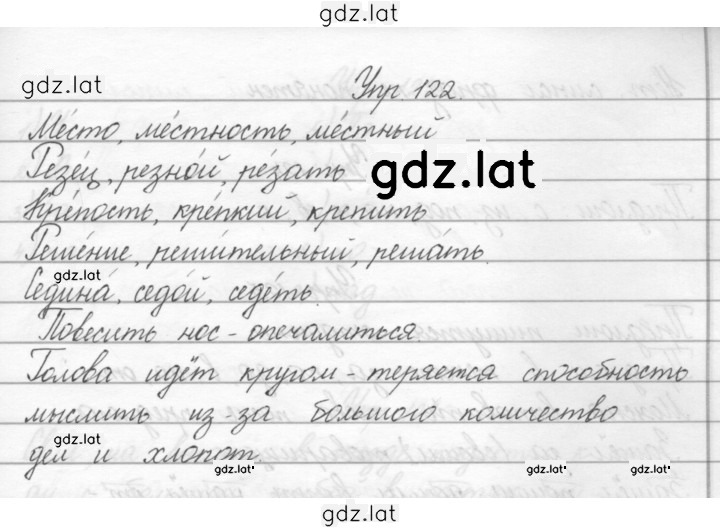 gdz.lat
gdz.lat
Упр. 122
Ме́сто, ме́стность, ме́стный
Резе́ц, резно́й, ре́зать
gdz.lat
Кре́пость, кре́пкий, крепи́ть
Реше́ние, реши́тельный, реша́ть.
gdz.lat
Седина́, седо́й, седе́ть.
Повесить нос - опечалиться
Голова идёт кругом - теряется способность
мыслить из-за большого количество
gdz.lat
дел и хлопот.
gdz.lat gdz.lat gdz.lat
gdz.lat